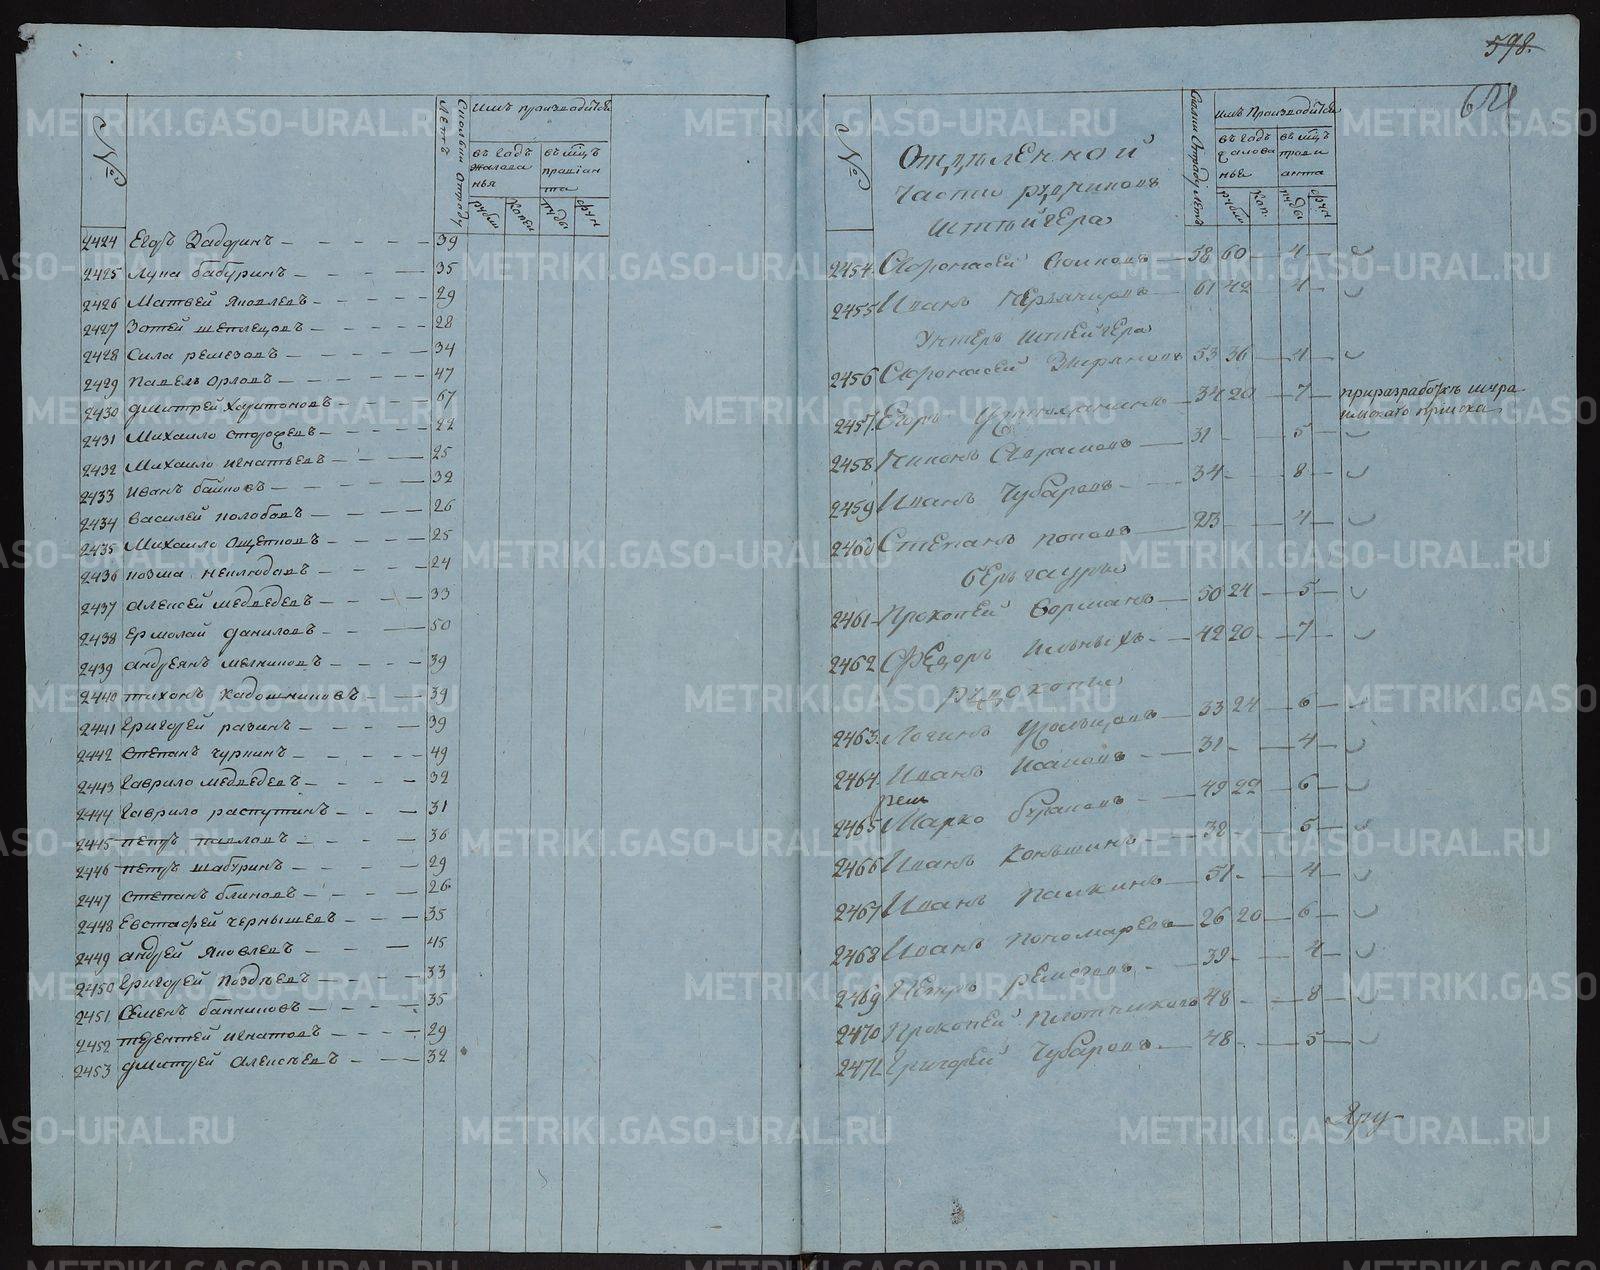 598.
№
Сколькин Отроду Летъ
имъ производится
въ годъ жалованья
въ мцъ правіанта
рубли
Копеи
пуды
фун
2424 Егоръ Забѣлинъ 39
2425 Лука бабуринъ 35
2426 Матвей Яковлевъ 29
2427 Зотей 28
2428 Сила ремезовъ 34
2429 Павелъ Орловъ 47
2430 Дмитрей Харитоновъ 67
2431 Михаило Сторожевъ 22
2432 Михаило игнатьевъ 25
2433 Иванъ баиновъ 32
2434 Василей колобовъ 26
2435 Михаило Ощепковъ 25
2436 козма неклюдовъ 24
2437 Алексей медведевъ 33
2438 Ермолай Даниловъ 50
2439 Андреянъ мелниковъ 39
2440 тихонъ кадошниковъ 39
2441 Григорей разинъ 39
2442 Степанъ Чуркинъ 49
2443 Гаврило медведевъ 32
2444 Гаврило распутинъ 31
2445 петръ павловъ 36
2446 петръ шабуринъ 29
2447 Степанъ блиновъ 26
2448 Евстафей чернышевъ 35
2449 Андрей Яковлевъ 45
2450 Григорей Поздѣевъ 33
2451 Семенъ банниковъ 35
2452 терентей игнатовъ 29
2453 Дмитрей Алексѣевъ 32
№
Отдѣленной
части рудниковъ
Штейгера
имъ Производится
въ годъ жалованья
въ мцъ правианта
рубли
коп.
пуды
фун
2454 Афонасей 58 60 4
2455 Иванъ 61 42 4
Унтеръ штейгера
2456 Афонасей Зыряновъ 53 36 4
2457 Егоръ 34 20 7 приразработкѣ
приіска
2458 Никонъ Авраамовъ 31 5
2459 Иванъ Чубаровъ 34 8
2460 Степанъ поповъ 23 4
бергауры
2461 Прокопей Борманъ 50 24 5
2462 Федоръ Ильиныхъ 42 20 7
рудокопы
2463 Логинъ 33 24 6
2464 Иванъ Исаковъ 31 4
2465 Марко бураковъ 49 22 6
2466 Иванъ Коньшинъ 38 5
2467 Иванъ Палкинъ 51 4
2468 Иванъ Пономаревъ 26 20 6
2469 Петръ ремезовъ 39 4
2470 Прокопей Плотникова 48 8
2471 Григорей Чубаровъ 48 5
METRIKI.GASO-URAL.RU